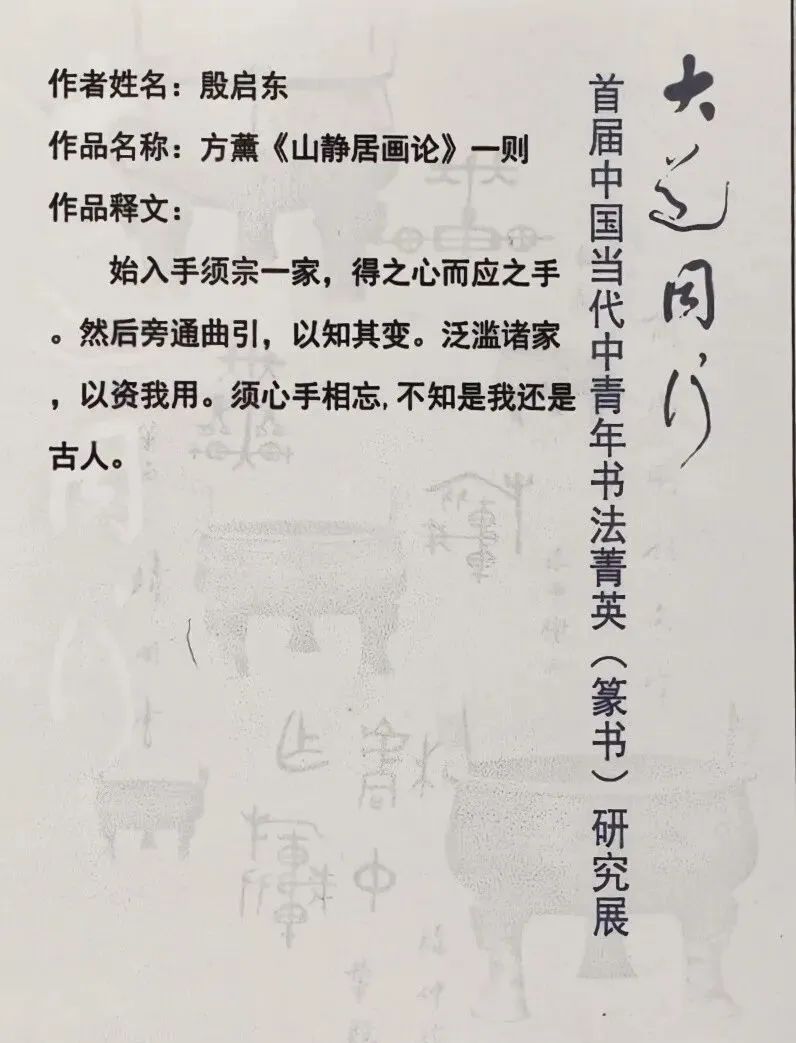 大道同行
首届中国当代中青年书法菁英（篆书）研究展
作者姓名：殷启东
作品名称：方薰《山静居画论》一则
作品释文：
始入手须宗一家，得之心而应之手
。然后旁通曲引，以知其变。泛滥诸家
，以资我用。须心手相忘,不知是我还是
古人。